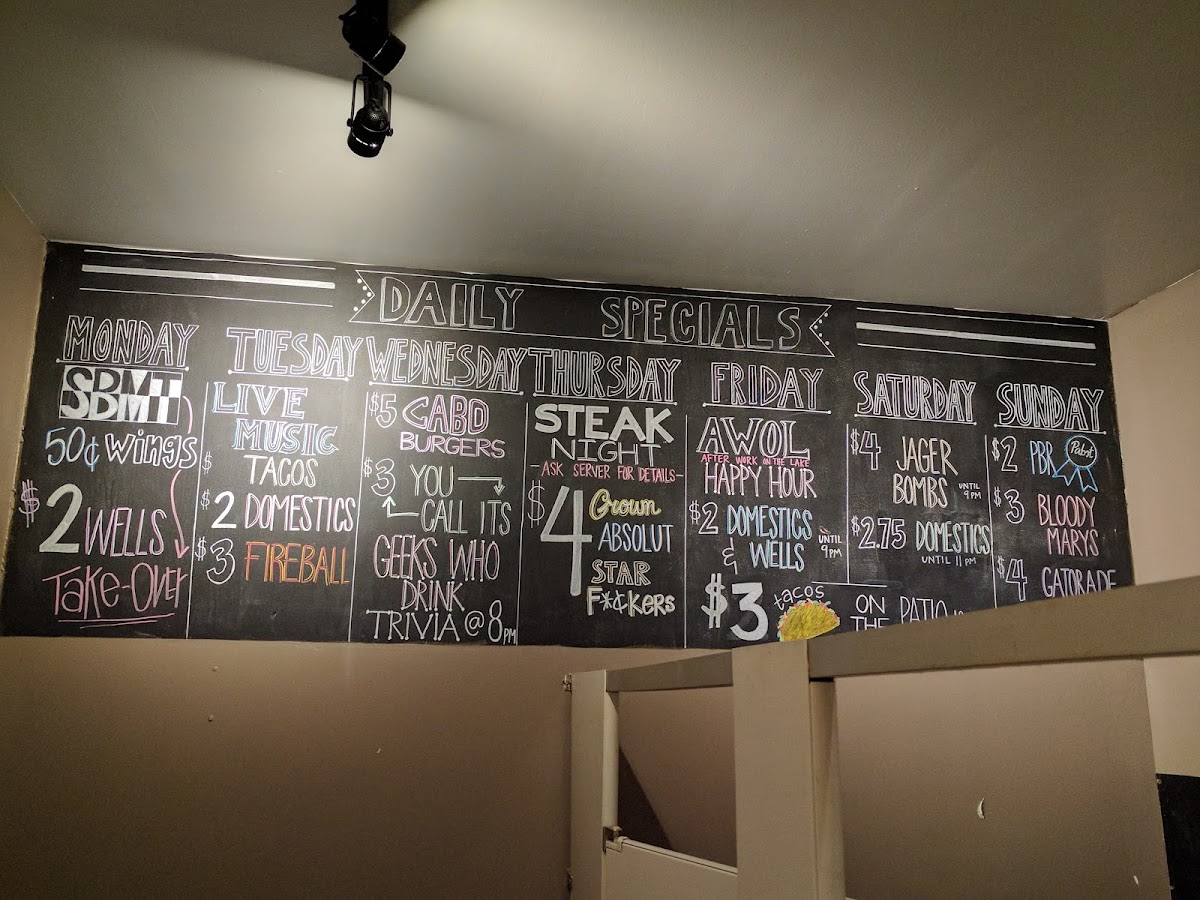 DAILY SPECIALS
MONDAY
SBMT
50¢ wings
$2 WELLS
Take-Over
TUESDAY
LIVE
MUSIC
$ TACOS
$2 DOMESTICS
$3 FIREBALL
WEDNESDAY
$5 CABO
BURGERS
$3 YOU
CALL ITS
GEEKS WHO
DRINK
TRIVIA @ 8PM
THURSDAY
STEAK
NIGHT
-ASK SERVER FOR DETAILS-
$4 Crown
ABSOLUT
STAR
F*¢kers
FRIDAY
AWOL
AFTER WORK ON THE LAKE
HAPPY HOUR
$2 DOMESTICS
& WELLS
UNTIL
9PM
$3 tacos
SATURDAY
$4 JAGER
BOMBS
UNTIL
9PM
$2.75 DOMESTICS
UNTIL 11PM
ON
THE PATIO
SUNDAY
$2 PBR
Pabst
$3 BLOODY
MARYS
$4 GATORADE